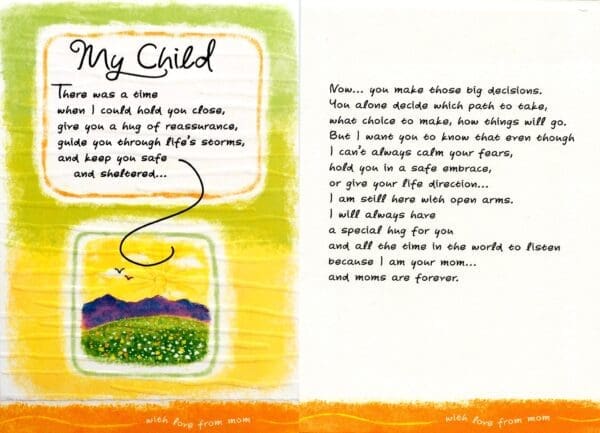 My Child
There was a time
when I could hold you close,
give you a hug of reassurance,
guide you through life's storms,
and keep you safe
and sheltered...
with love from mom
Now... you make those big decisions.
You alone decide which path to take,
what choice to make, how things will go.
But I want you to know that even though
I can't always calm your fears,
hold you in a safe embrace,
or give your life direction...
I am still here with open arms.
I will always have
a special hug for you
and all the time in the world to listen
because I am your mom...
and moms are forever.
with love from mom